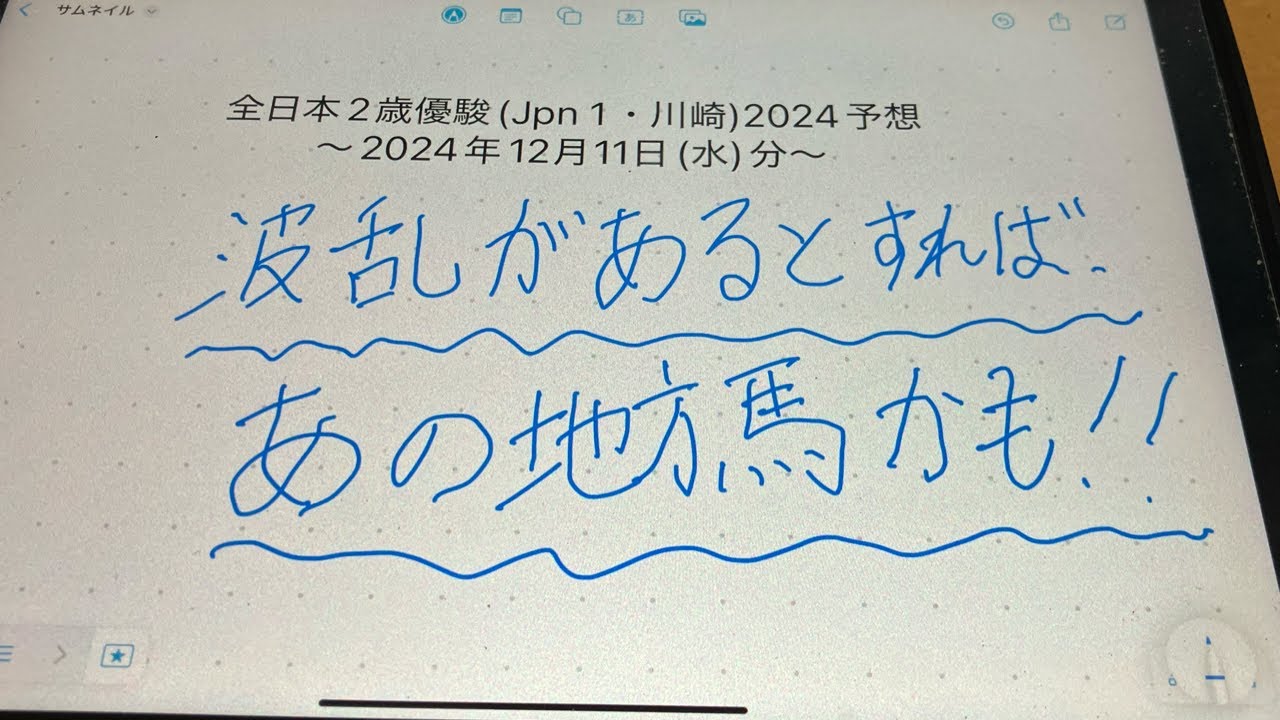 サムネイル
あ
全日本２歳優駿(Jpn１・川崎)2024予想
～2024年12月11日(水)分～
波乱があるとすれば、
あの地方馬かも!!